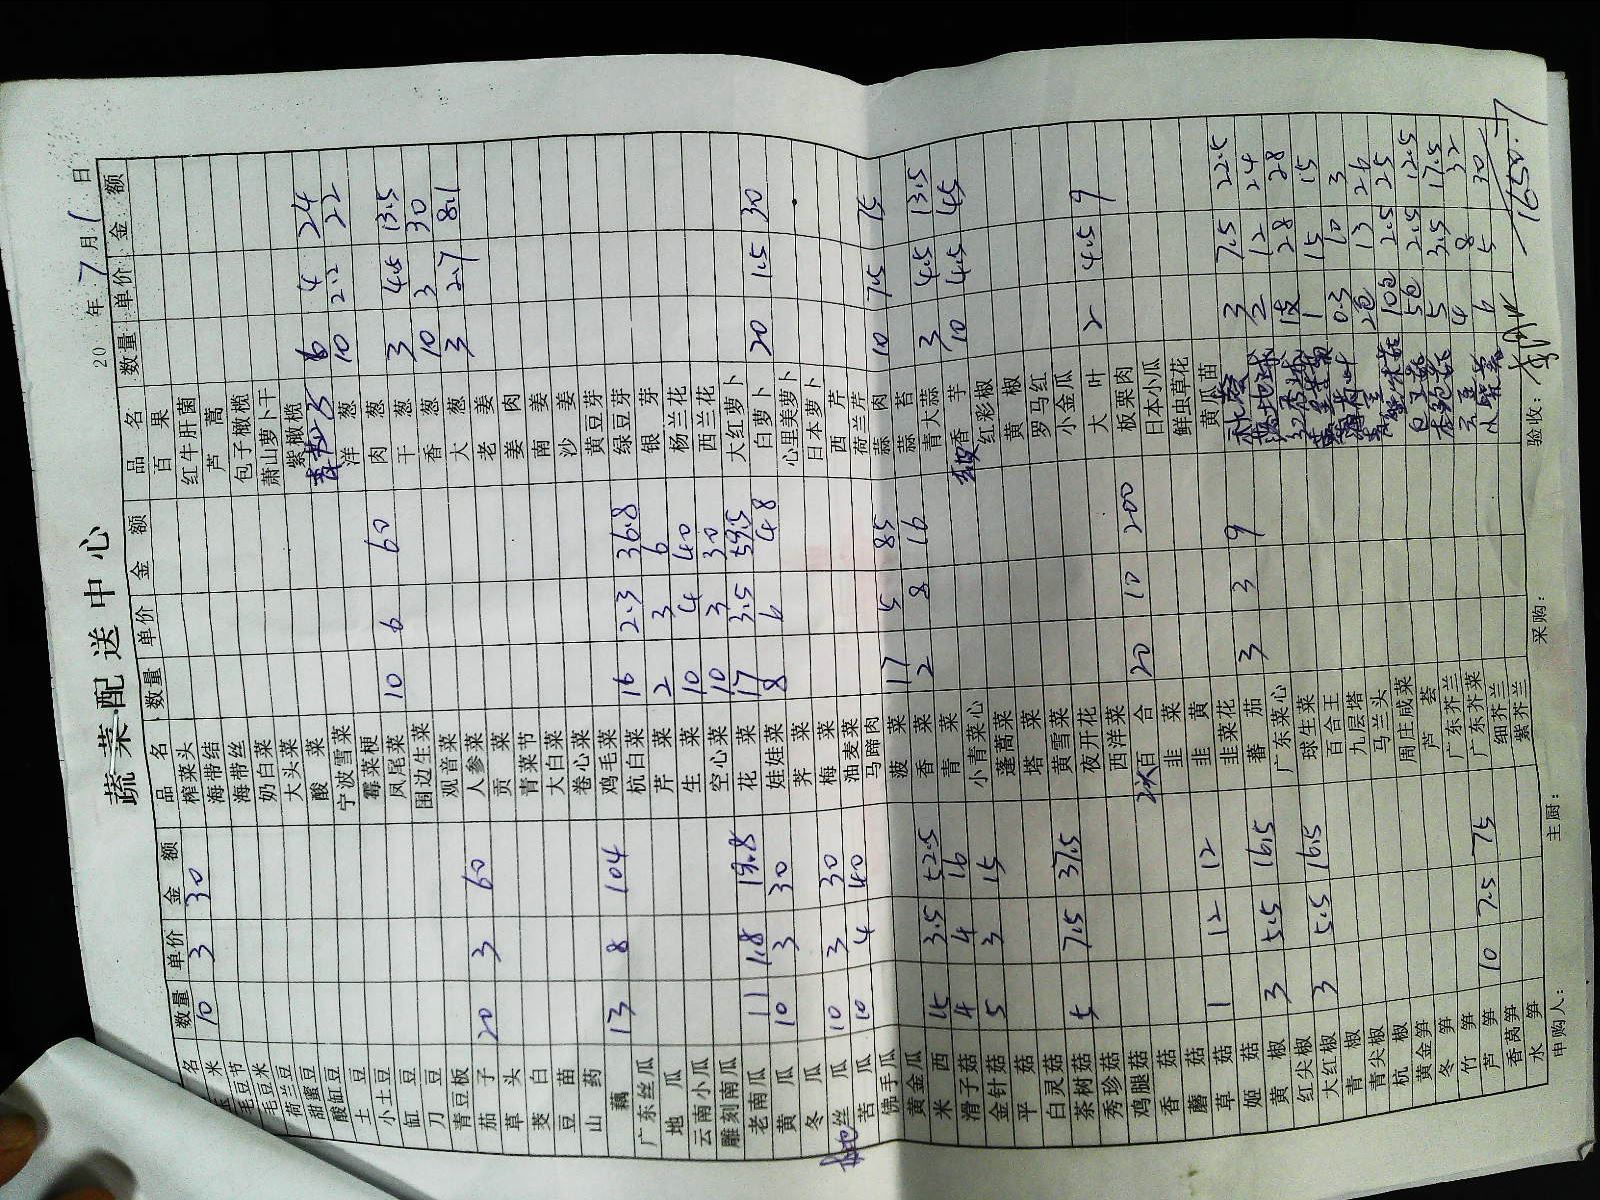 蔬菜配送中心
20 年 7 月 1 日
名 数量 单价 金额
米 10 3 30
毛豆节
毛豆米
荷兰豆
甜蜜豆
酸缸豆
土豆
小土豆
缸豆
刀豆
青豆板
茄子 20 3 60
草头
茭白
豆苗
山药
藕 13 8 104
广东丝瓜
地瓜
云南小瓜
雕刻南瓜
老南瓜 11 1.8 19.8
黄瓜 10 3 30
冬瓜
丝瓜 10 3 30
苦瓜 10 4 40
佛手瓜
黄金瓜
米西 15 3.5 52.5
滑子菇 4 4 16
金针菇 5 3 15
平菇
白灵菇
茶树菇 5 7.5 37.5
秀珍菇
鸡腿菇
香菇
蘑菇
草菇 1 12 12
姬菇
黄椒 3 5.5 16.5
红尖椒
大红椒 3 5.5 16.5
青椒
青尖椒
杭椒
黄金笋
冬笋
竹笋
芦笋 10 7.5 75
香莴笋
水笋
品名 数量 单价 金额
榨菜头
海带结
海带丝
奶白菜
大头菜
酸菜
宁波雪菜
霉菜梗
凤尾菜 10 6 60
围边生菜
观音菜
人参菜
贡菜
青菜节
大白菜
卷心菜
鸡毛菜
杭白菜 16 2.3 36.8
芹菜 2 3 6
生菜 10 4 40
空心菜 10 3 30
花菜 17 3.5 59.5
娃娃菜 8 6 48
荠菜
梅菜
油麦菜
马蹄肉
菠菜 17 5 85
香菜 2 8 16
青菜
小青菜心
蓬蒿菜
塔菜
黄雪菜
夜开花
西洋菜
百合 20 10 200
韭菜
韭黄
韭菜花
蕃茄 3 3 9
广东菜心
球生菜
百合王
九层塔
马兰头
周庄咸菜
芦荟
广东芥兰
广东芥菜
细芥兰
紫芥兰
品名 数量 单价 金额
百果
红牛肝菌
芦蒿
包子橄榄
萧山萝卜干
紫橄榄
6 4 24
洋葱 10 2.2 22
肉葱
干葱 3 4.5 13.5
香葱 10 3 30
大葱 3 2.7 8.1
老姜
姜肉
南姜
沙姜
黄豆芽
绿豆芽
银芽
杨兰花
西兰花
大红萝卜
白萝卜 20 1.5 30
心里美萝卜
日本萝卜
西芹
荷兰芹
蒜肉 10 7.5 75
蒜苔
青大蒜 3 4.5 13.5
香芋 10 4.5 45
红彩椒
黄椒
罗马红
小金瓜
大叶 2 4.5 9
板栗肉
日本小瓜
鲜虫草花
黄瓜苗
3 7.5 22.5
2 12 24
1支 28 28
1 15 15
0.3 10 3
2包 13 26
10包 2.5 25
5包 2.5 12.5
5 3.5 17.5
4 8 32
6 5 30
1650.7
申购人：
主厨：
采购：
验收：